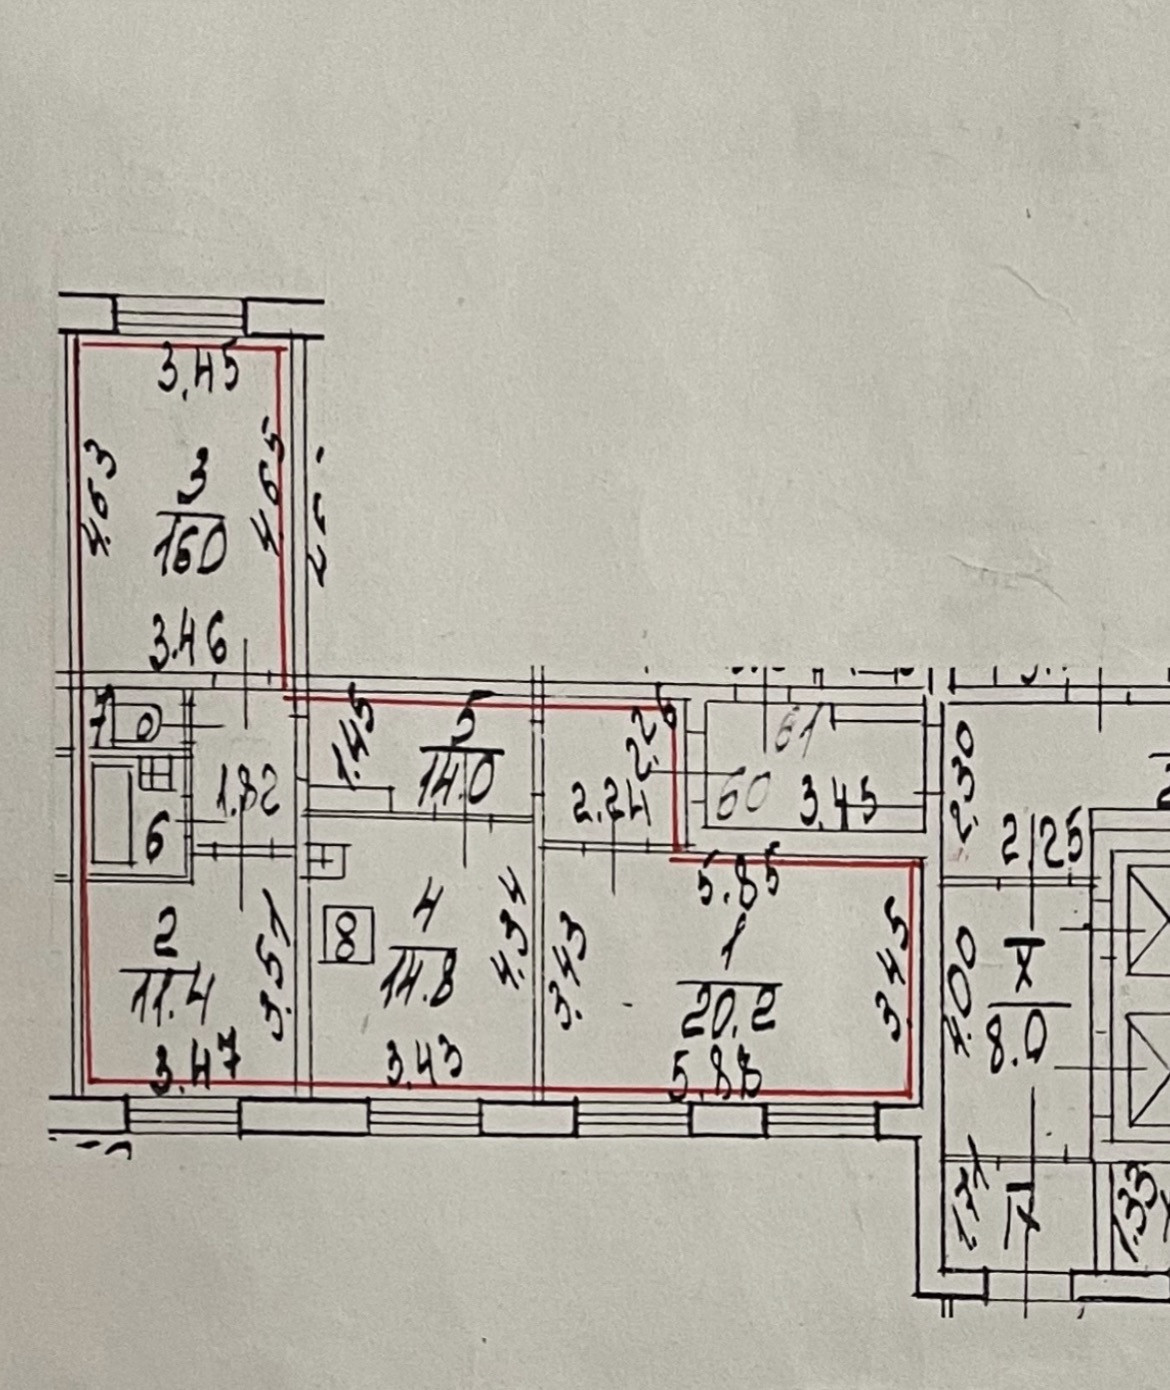 3.45
4.63
3
16.0
4.65
3.46
7
1.45
5
14.0
2.26
61
60
3.45
2.24
2.30
2.25
1.82
6
5.85
2
11.4
3.57
8
4
14.8
4.34
3.43
1
20.2
3.45
X
8.0
3.47
3.43
5.88
IX
1.33